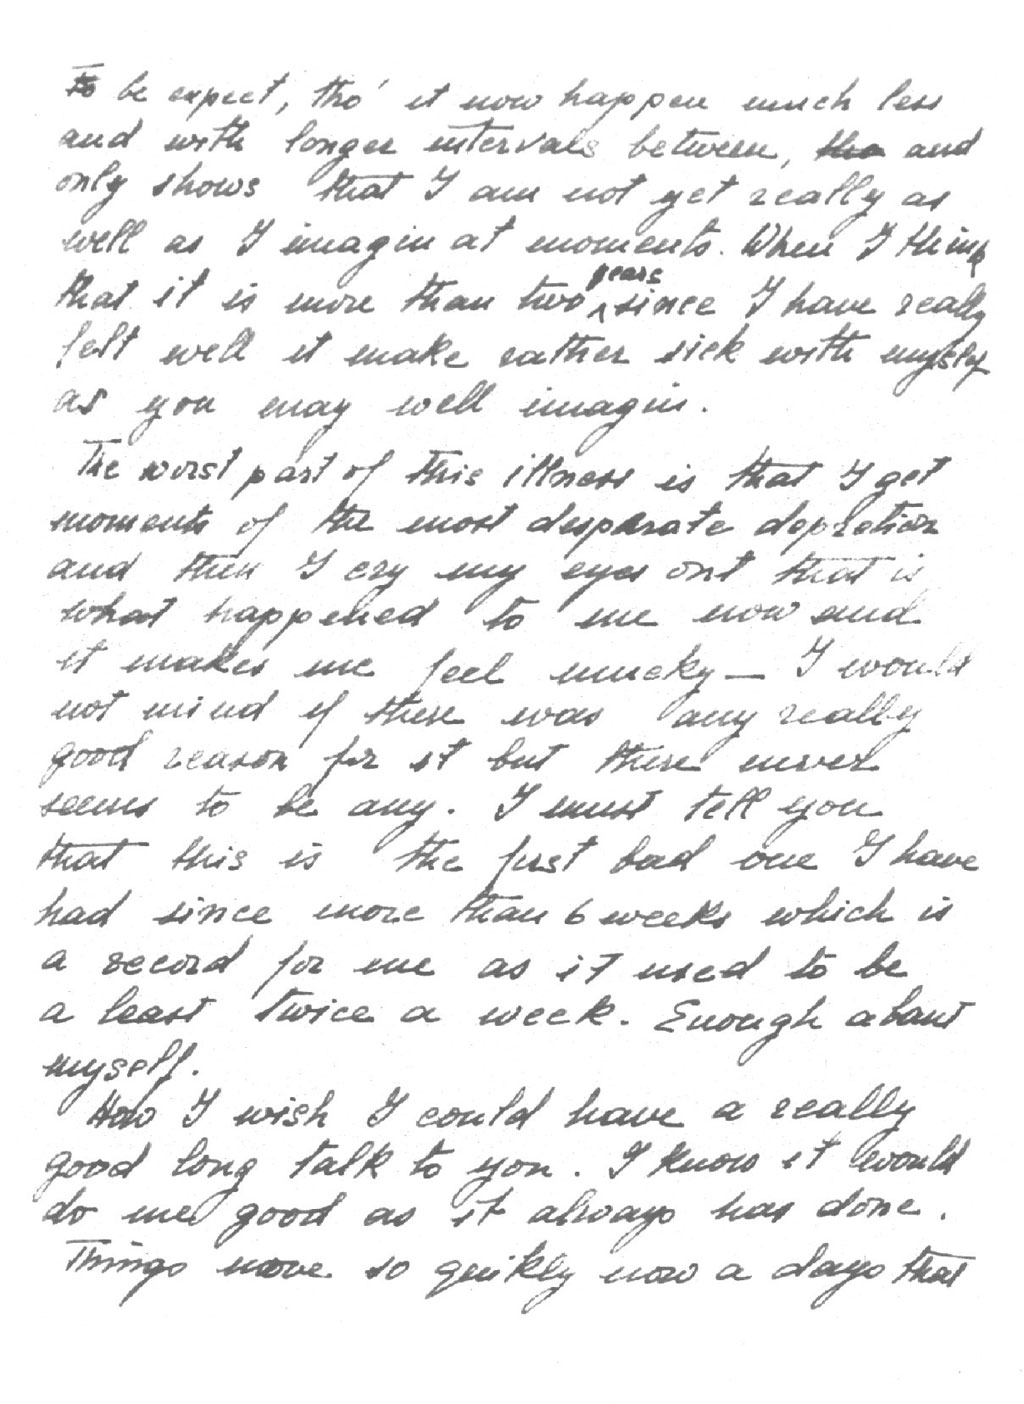 To be expect, tho' it now happen much less
and with longer intervals between, tho and
only shows that I am not yet really as
well as I imagin at moments. When I think
that it is more than two years since I have really
felt well it make rather sick with myself
as you may well imagin.
The worst part of this illness is that I get
moments of the most desperate depretion
and then I cry my eyes out that is
what happened to me now and
it makes me feel mucky — I would
not mind if there was any really
good reason for it but there never
seems to be any. I must tell you
that this is the first bad one I have
had since more than 6 weeks which is
a record for me as it used to be
a least twice a week. Enough about
myself.
How I wish I could have a really
good long talk to you. I know it would
do me good as it always has done.
Things move so quikly now a days that